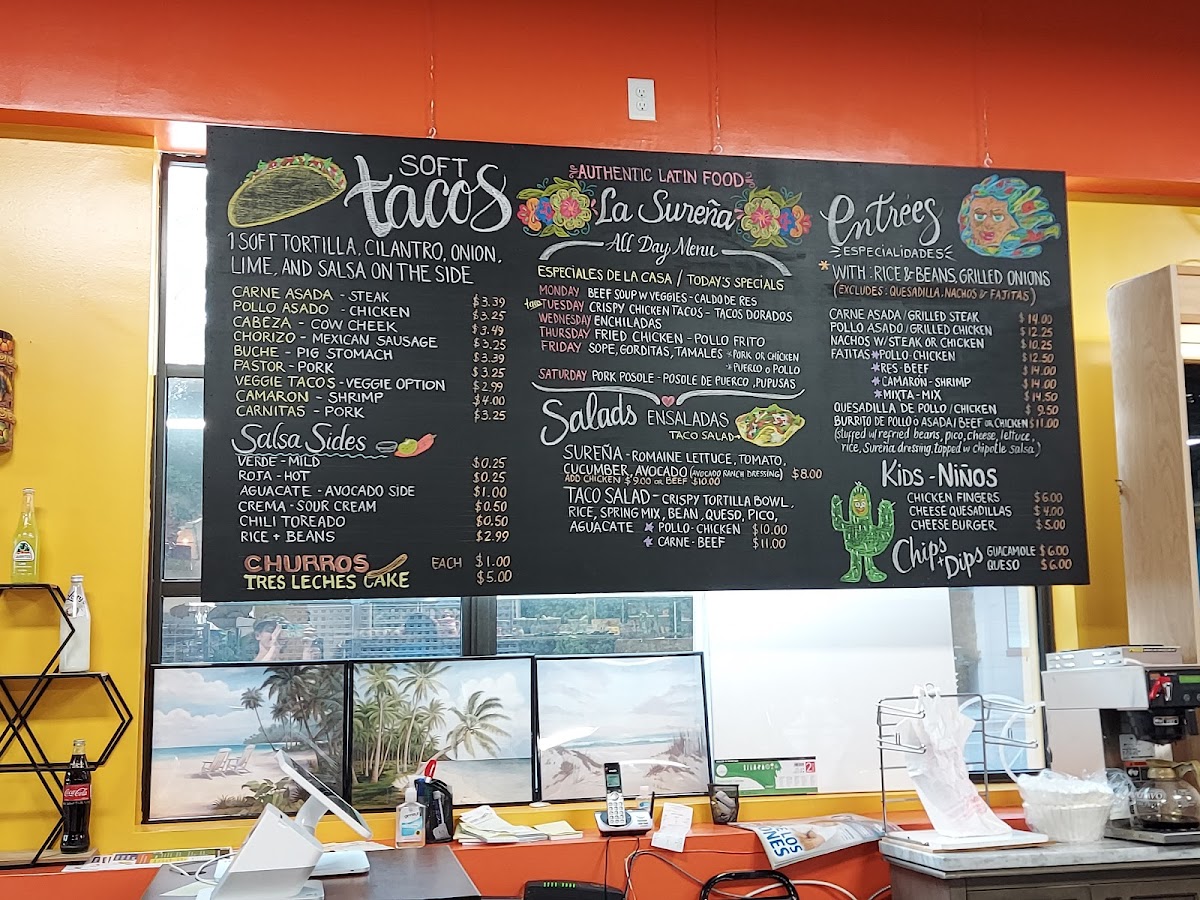 SOFT
tacos
1 SOFT TORTILLA, CILANTRO, ONION,
LIME, AND SALSA ON THE SIDE
CARNE ASADA - STEAK $3.39
POLLO ASADO - CHICKEN $3.25
CABEZA - COW CHEEK $3.49
CHORIZO - MEXICAN SAUSAGE $3.25
BUCHE - PIG STOMACH $3.39
PASTOR - PORK $3.25
VEGGIE TACOS - VEGGIE OPTION $2.99
CAMARON - SHRIMP $4.00
CARNITAS - PORK $3.25
Salsa Sides
VERDE - MILD $0.25
ROJA - HOT $0.25
AGUACATE - AVOCADO SIDE $1.00
CREMA - SOUR CREAM $0.50
CHILI TOREADO $0.50
RICE + BEANS $2.99
CHURROS EACH $1.00
TRES LECHES CAKE $5.00
AUTHENTIC LATIN FOOD
La Sureña
All Day Menu
ESPECIALES DE LA CASA / TODAY'S SPECIALS
MONDAY BEEF SOUP W VEGGIES - CALDO DE RES
taco TUESDAY CRISPY CHICKEN TACOS - TACOS DORADOS
WEDNESDAY ENCHILADAS
THURSDAY FRIED CHICKEN - POLLO FRITO
FRIDAY SOPE, GORDITAS, TAMALES *PORK OR CHICKEN
*PUERCO O POLLO
SATURDAY PORK POSOLE - POSOLE DE PUERCO, PUPUSAS
Salads ENSALADAS
TACO SALAD
SUREÑA - ROMAINE LETTUCE, TOMATO,
CUCUMBER, AVOCADO (AVOCADO RANCH DRESSING) $8.00
ADD CHICKEN $9.00 OR BEEF $10.00
TACO SALAD - CRISPY TORTILLA BOWL,
RICE, SPRING MIX, BEAN, QUESO, PICO,
AGUACATE * POLLO - CHICKEN $10.00
* CARNE - BEEF $11.00
Entrées
ESPECIALIDADES
* WITH: RICE & BEANS, GRILLED ONIONS
(EXCLUDES: QUESADILLA, NACHOS & FAJITAS)
CARNE ASADA / GRILLED STEAK $14.00
POLLO ASADO / GRILLED CHICKEN $12.25
NACHOS W/ STEAK OR CHICKEN $10.25
FAJITAS *POLLO - CHICKEN $12.50
*RES - BEEF $14.00
*CAMARÓN - SHRIMP $14.00
*MIXTA - MIX $14.50
QUESADILLA DE POLLO / CHICKEN $9.50
BURRITO DE POLLO O ASADA / BEEF OR CHICKEN $11.00
(stuffed w/ refried beans, pico, cheese, lettuce,
rice, Sureña dressing, topped w/ chipotle salsa)
KIDS - NIÑOS
CHICKEN FINGERS $6.00
CHEESE QUESADILLAS $4.00
CHEESE BURGER $5.00
Chips + Dips
GUACAMOLE $6.00
QUESO $6.00
Coca-Cola